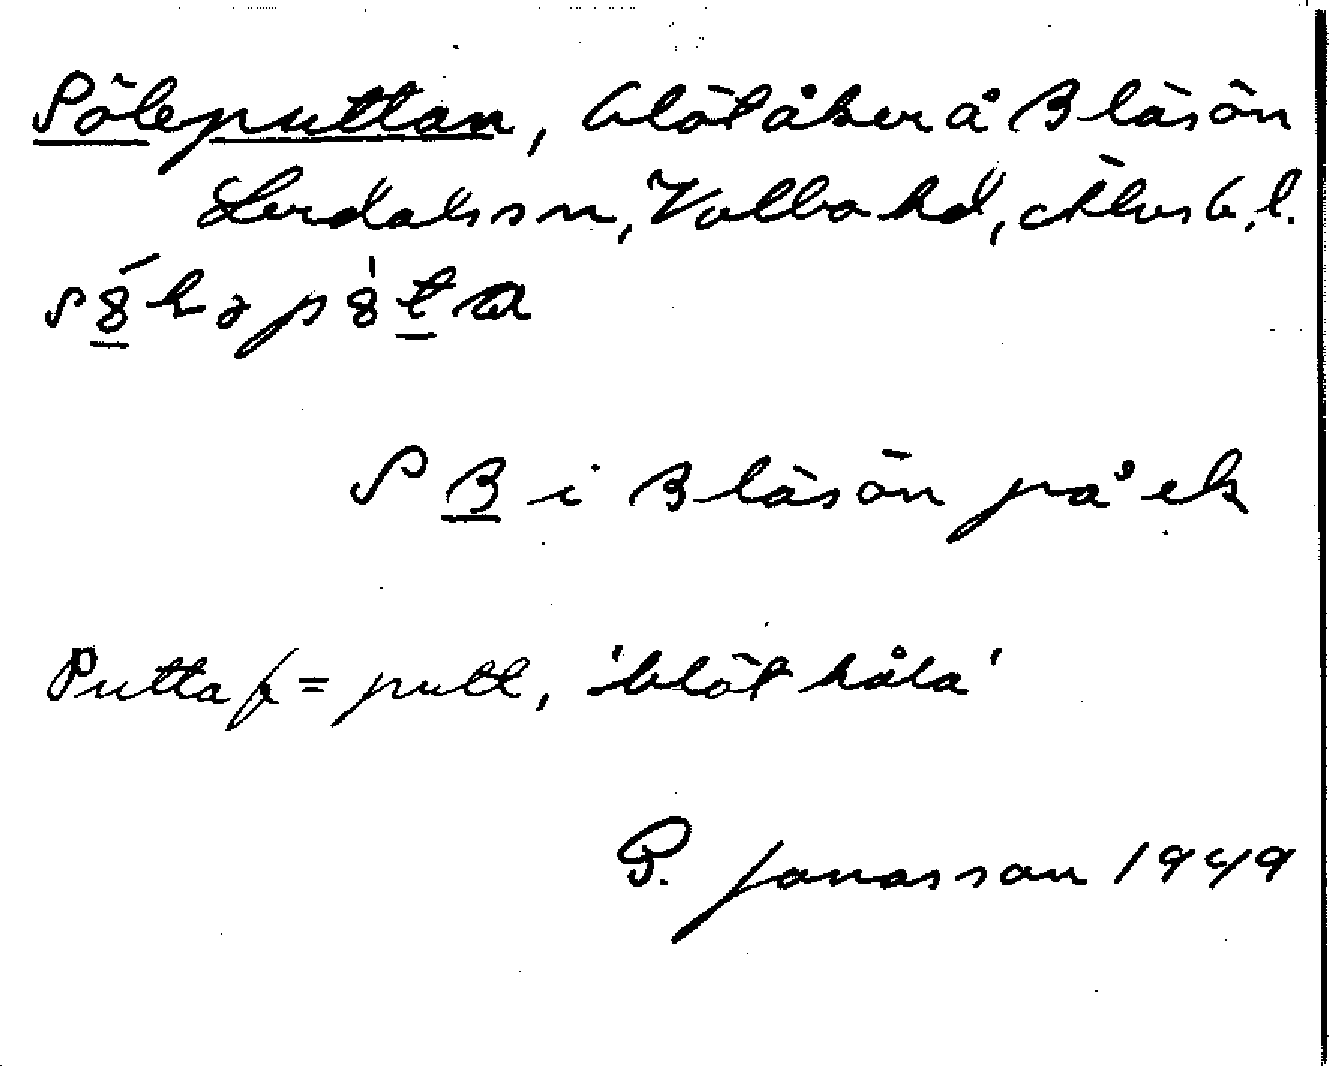 Söleputtan, blöt åker å Bläsön
Lerdals sn, Valbo hd, Älvsb. l.
PB i Bläsön på ek
Putta f = putt, 'blöt håla'
P. Jonasson 1949